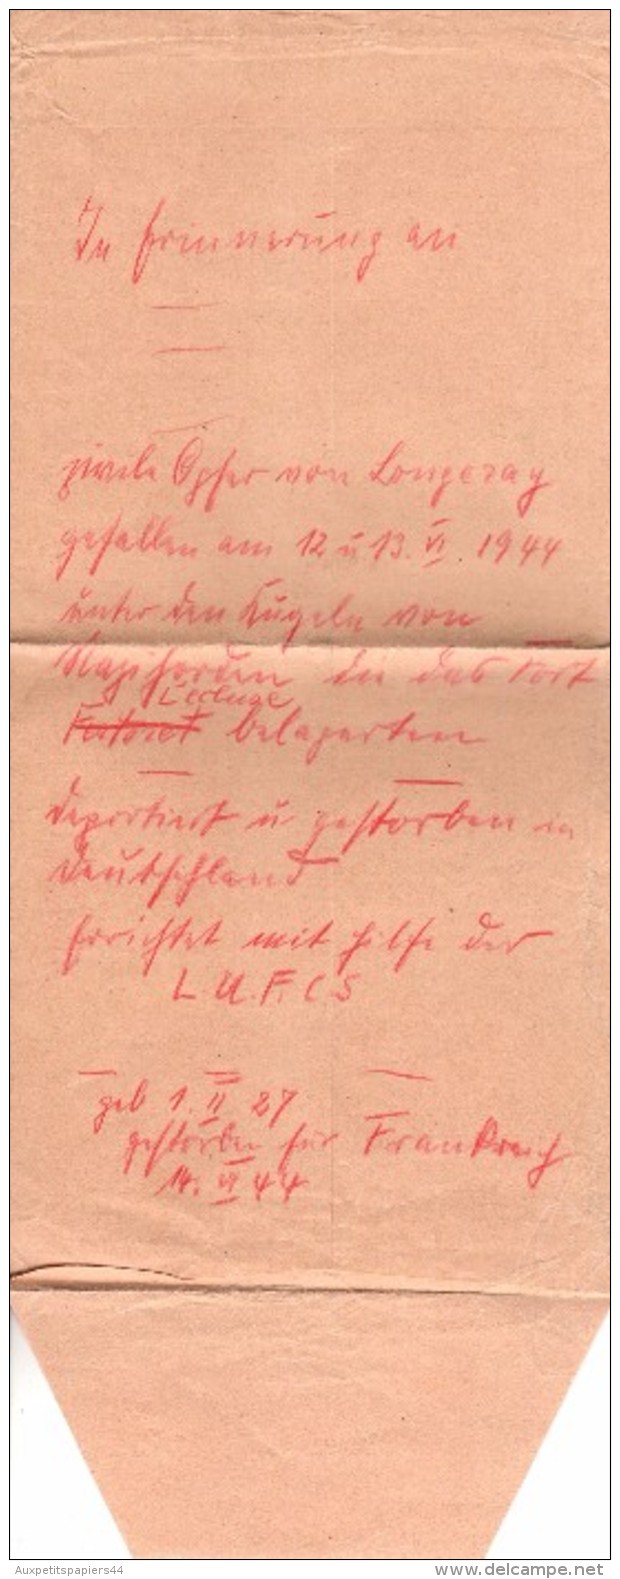 In Erinnerung an
zivile Opfer von Longeray
gefallen am 12 u 13. VI. 1944
unter den Kugeln von
die das Fort
L'ecluse
belagerten
deportiert u gestorben in
Deutschland
Errichtet mit Hilfe der
L.U.F.C S
geb 1. II 27
gestorben für Frankreich
14. VI 44
Auxpetitspapiers44
www.delcampe.net